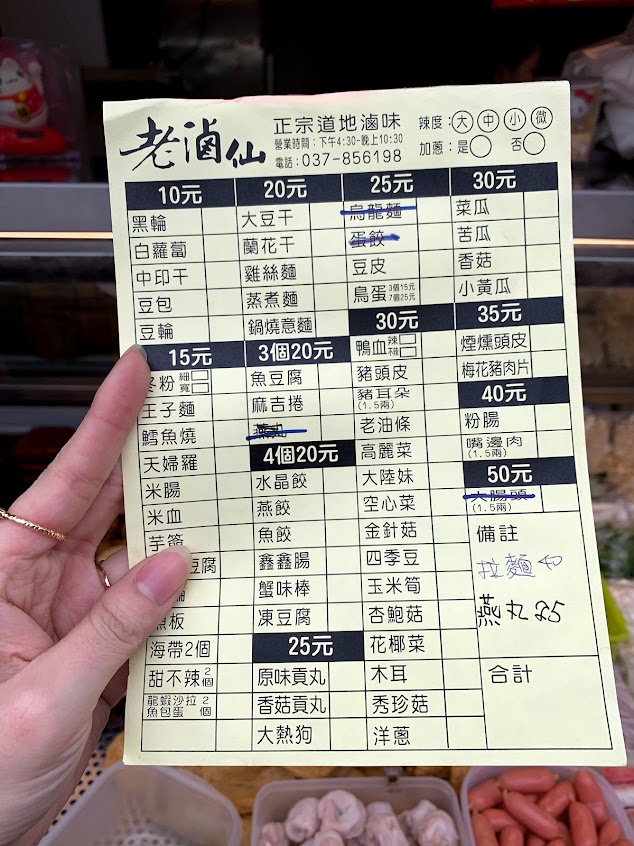 老滷仙
正宗道地滷味
營業時間：下午4:30-晚上10:30
電話：037-856198
辣度：大 中 小 微
加蔥：是 否
10元
黑輪
白蘿蔔
中印干
豆包
豆輪
15元
冬粉 細 寬
王子麵
鱈魚燒
天婦羅
米腸
米血
豆腐
魚板
海帶2個
甜不辣 2個
龍蝦沙拉 2
魚包蛋 個
20元
大豆干
蘭花干
雞絲麵
蒸煮麵
鍋燒意麵
3個20元
魚豆腐
麻吉捲
燕丸
4個20元
水晶餃
燕餃
魚餃
鑫鑫腸
蟹味棒
凍豆腐
25元
原味貢丸
香菇貢丸
大熱狗
25元
烏龍麵
蛋餃
豆皮
鳥蛋 3個15元 7個25元
30元
鴨血 辣
豬頭皮
豬耳朵
(1.5兩)
老油條
高麗菜
大陸妹
空心菜
金針菇
四季豆
玉米筍
杏鮑菇
花椰菜
木耳
秀珍菇
洋蔥
30元
菜瓜
苦瓜
香菇
小黃瓜
35元
煙燻頭皮
梅花豬肉片
40元
粉腸
嘴邊肉
(1.5兩)
50元
大腸頭
(1.5兩)
備註
拉麵
燕丸 25
合計